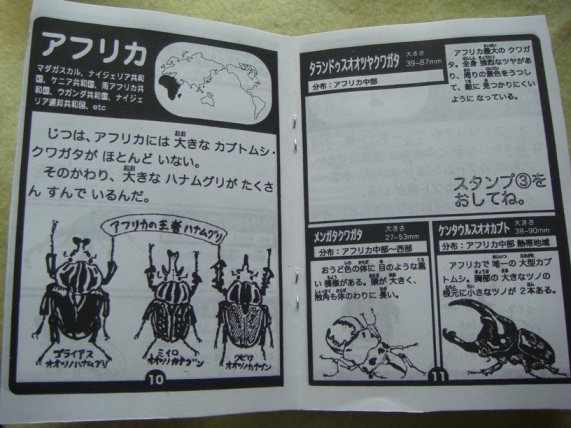 アフリカ
マダガスカル、ナイジェリア共和
国、ケニア共和国、南アフリカ共
和国、ウガンダ共和国、ナイジェ
リア連邦共和国、etc
じつは、アフリカには 大きな カブトムシ・
クワガタが ほとんど いない。
そのかわり、大きな ハナムグリが たくさ
ん すんで いるんだ。
アフリカの王者ハナムグリ
ゴライアス
オオツノハナムグリ
ミイロ
オオツノカナブン
クビワ
オオツノカナブン
10
タランドゥスオオツヤクワガタ
大きさ
39~87mm
分布：アフリカ中部
アフリカ最大の クワガ
タ。全身 強烈なツヤがあ
り、周りの景色をうつし
て、敵に 見つかりにくい
ように なっている。
スタンプ③を
おしてね。
メンガタクワガタ
大きさ
27~53mm
分布：アフリカ中部~西部
おうど色の体に 目のような黒
い 模様がある。頭が 大きく、
触角も体のわりに 長い。
ケンタウルスオオカブト
大きさ
38~90mm
分布：アフリカ中部 熱帯地域
アフリカで 唯一の 大型カブ
トムシ。胸部の 大きなツノの
根元に小さなツノが 2本ある。
11